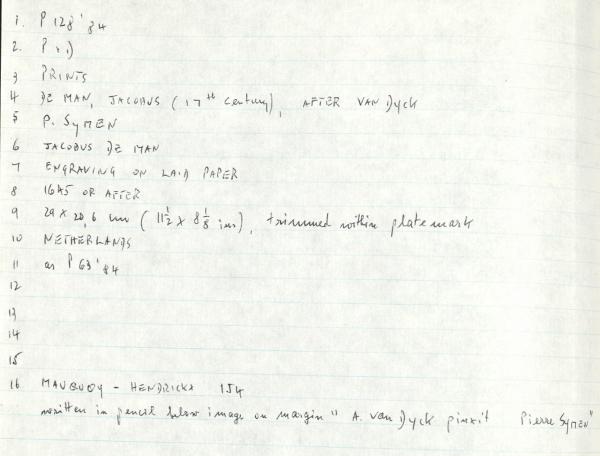 1. P 128'84
2. P
3 PRINTS
4 DE MAN, JACOBUS (17th century), AFTER VAN Dyck
5 P. SYMEN
6 JACOBUS DE MAN
7 ENGRAVING ON LAID PAPER
8 1645 OR AFTER
9 29 x 20,6 cm (11 1/2 x 8 1/8 ins), trimmed within platemark
10 NETHERLANDS
11 as P 63'84
12
13
14
15
16 MAUQUOY - HENDRICKX 154
written in pencil below image on margin " A. van Dyck pinxit Pierre SYMEN"